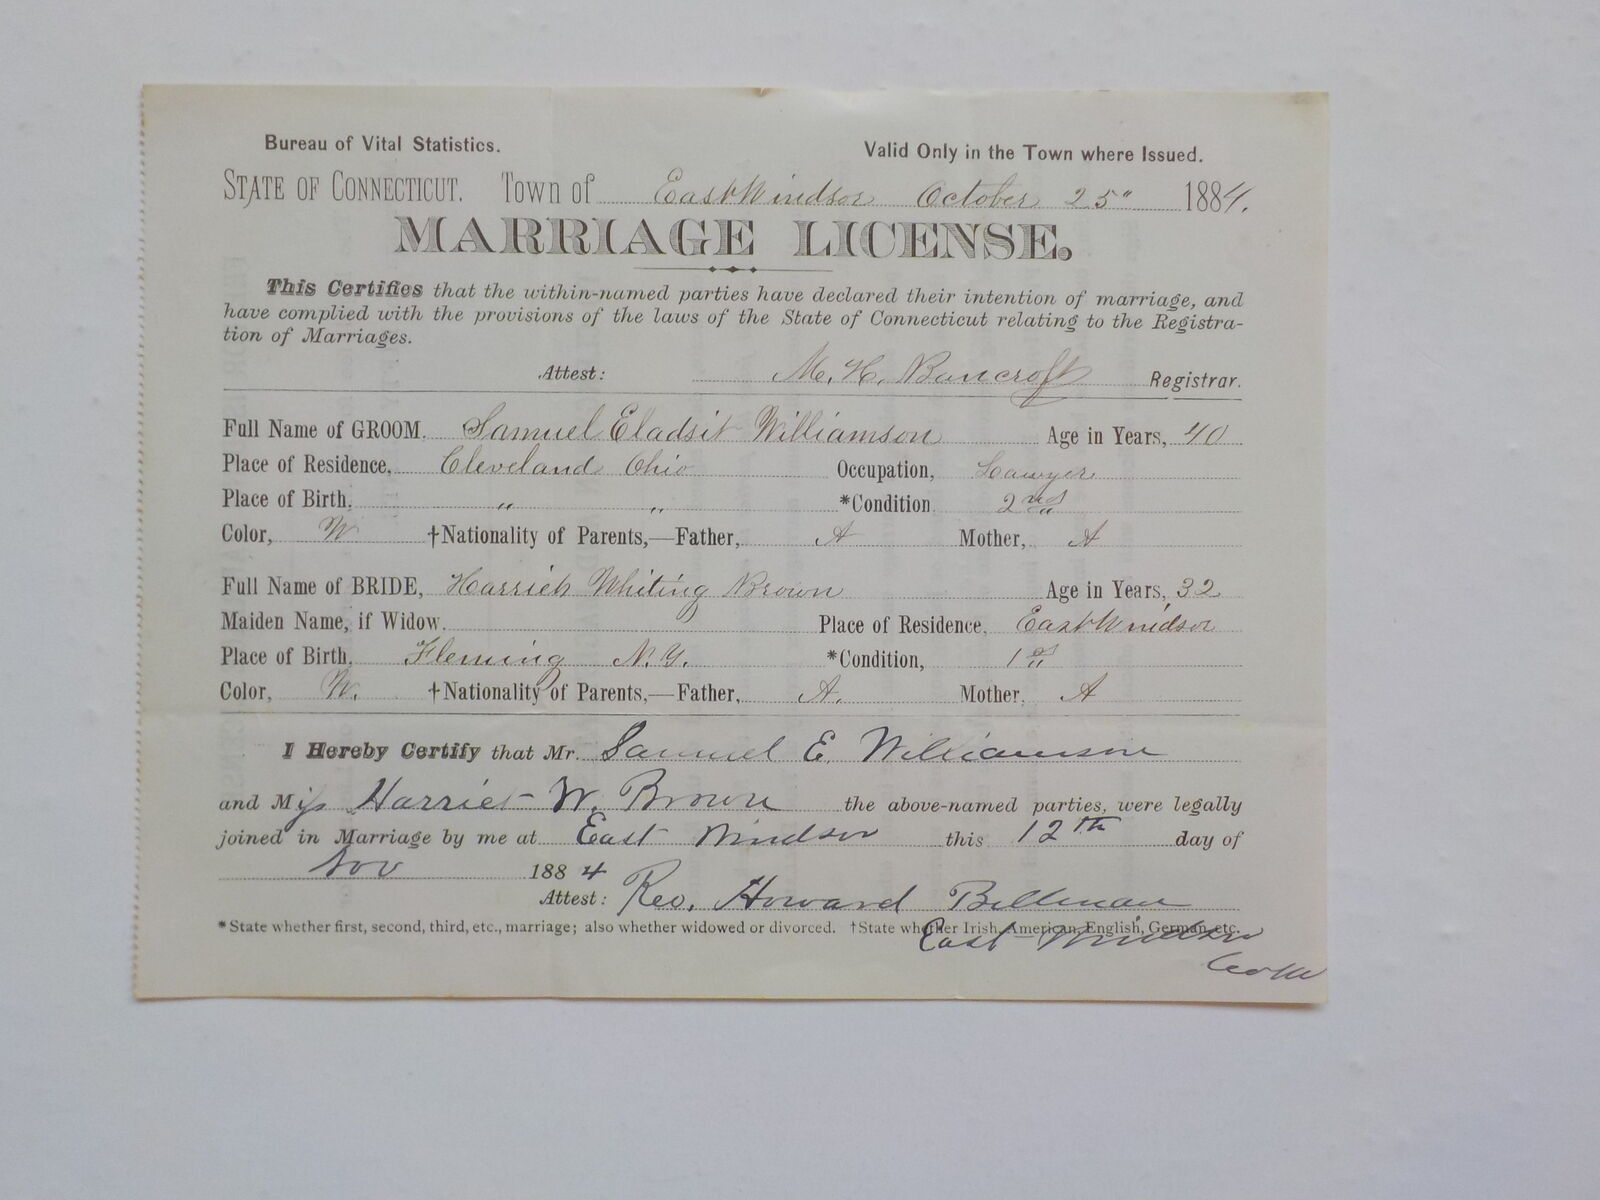 Bureau of Vital Statistics. Valid Only in the Town where Issued.
STATE OF CONNECTICUT. Town of East Windsor October 25" 1884.
MARRIAGE LICENSE.
This Certifies that the within-named parties have declared their intention of marriage, and
have complied with the provisions of the laws of the State of Connecticut relating to the Registra-
tion of Marriages.
Attest: M. H. Bancroft Registrar.
Full Name of GROOM. Samuel Eladsit Williamson Age in Years, 40
Place of Residence, Cleveland Ohio Occupation, Lawyer
Place of Birth, " " *Condition 2nd
Color, W †Nationality of Parents,—Father, A Mother, A
Full Name of BRIDE, Harriet Whiting Brown Age in Years, 32
Maiden Name, if Widow. Place of Residence, East Windsor
Place of Birth, Fleming N.Y. *Condition, 1st
Color, W. †Nationality of Parents,—Father, A. Mother, A
I Hereby Certify that Mr. Samuel E. Williamson
and Miss Harriet W. Brown the above-named parties, were legally
joined in Marriage by me at East Windsor this 12th day of
Nov 1884
Attest: Rev. Howard Billman
*State whether first, second, third, etc., marriage; also whether widowed or divorced. †State whether Irish, American, English, German, etc.
East Windsor